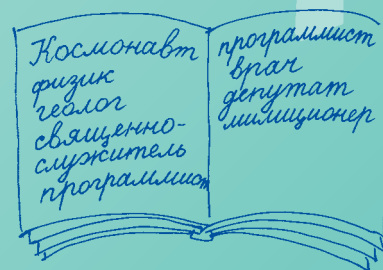 Космонавт
физик
геолог
священно-
служитель
программист
программист
врач
депутат
милиционер